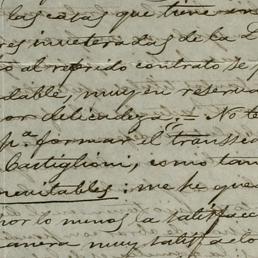 las casas que tiene en
res inveteradas de la
to al referido contrato se p
dable, muy en reserva
por delicadeza. = No te
pa. formar el
Castiglioni, como tam
inevitables: me he que
por lo menos la satisfacc
manera muy satisfacto